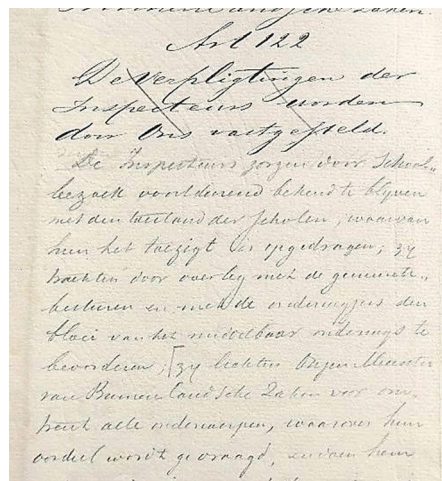 Binnenlandsche Zaken.
Art 122
De verpligtingen der
Inspecteurs worden
door Ons vastgesteld.
De Inspecteurs zorgen door School-
bezoek voortdurend bekend te blijven
met den toestand der scholen, waarvan
hun het toezigt is opgedragen; zy
trachten door overleg met de gemeente-
besturen en met de onderwyzers den
bloei van het middelbaar onderwys te
bevorderen; [zy lichten Onzen Minister
van Binnenlandsche Zaken voor om-
trent alle onderwerpen, waarover hun
oordeel wordt gevraagd, en doen hem